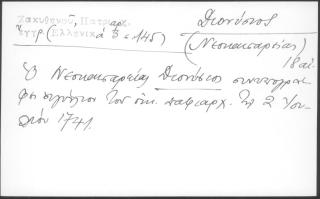 Ζακυθηνοῦ, Πατριαρ.
ἔγγρ. (Ἑλληνικά 3 = 145)
Διονύσιος
(Νεοκαισαρείας)
18 αἰ.
Ὁ Νεοκαισαρείας Διονύσιος συνυπογρά-
φει σιγίλλιον τοῦ οἰκ. πατριαρχ. τῇ 2 Ἰου-
λίου 1741.